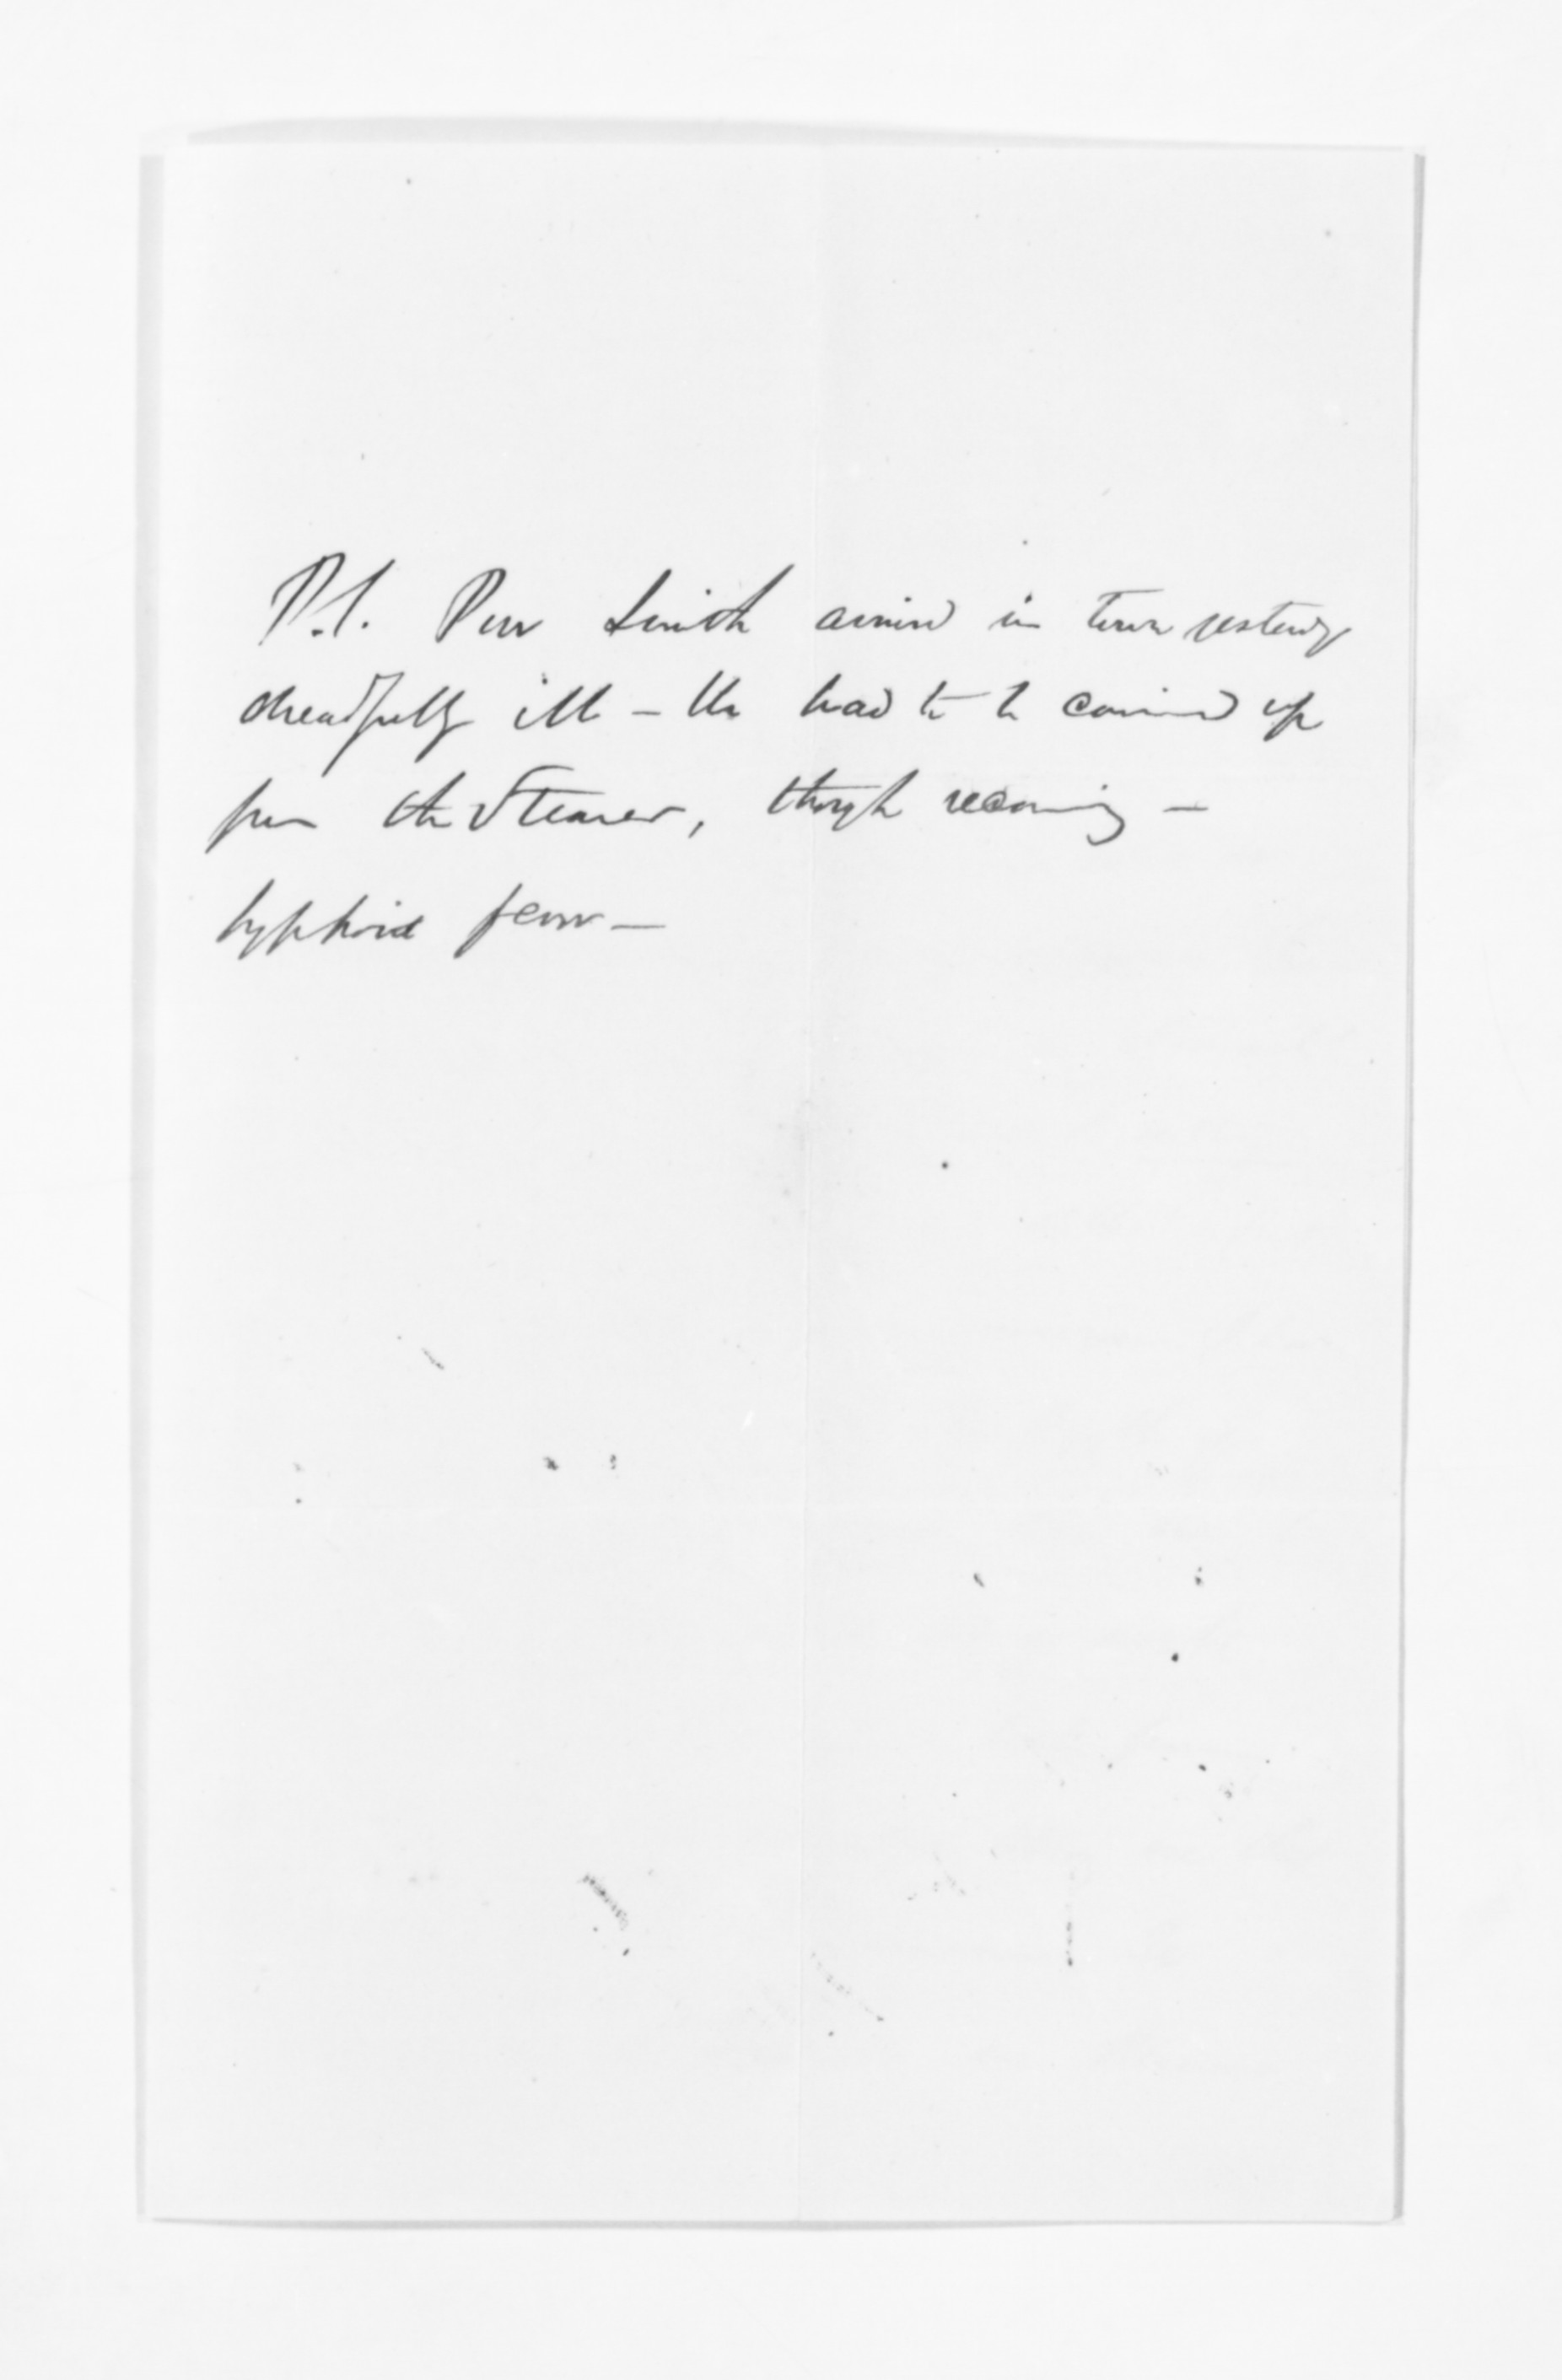 P.S. Perr Smith arrived in town yesterday
dreadfully ill – He had to be carried up
from the Steamer, though recovering –
typhoid fever –